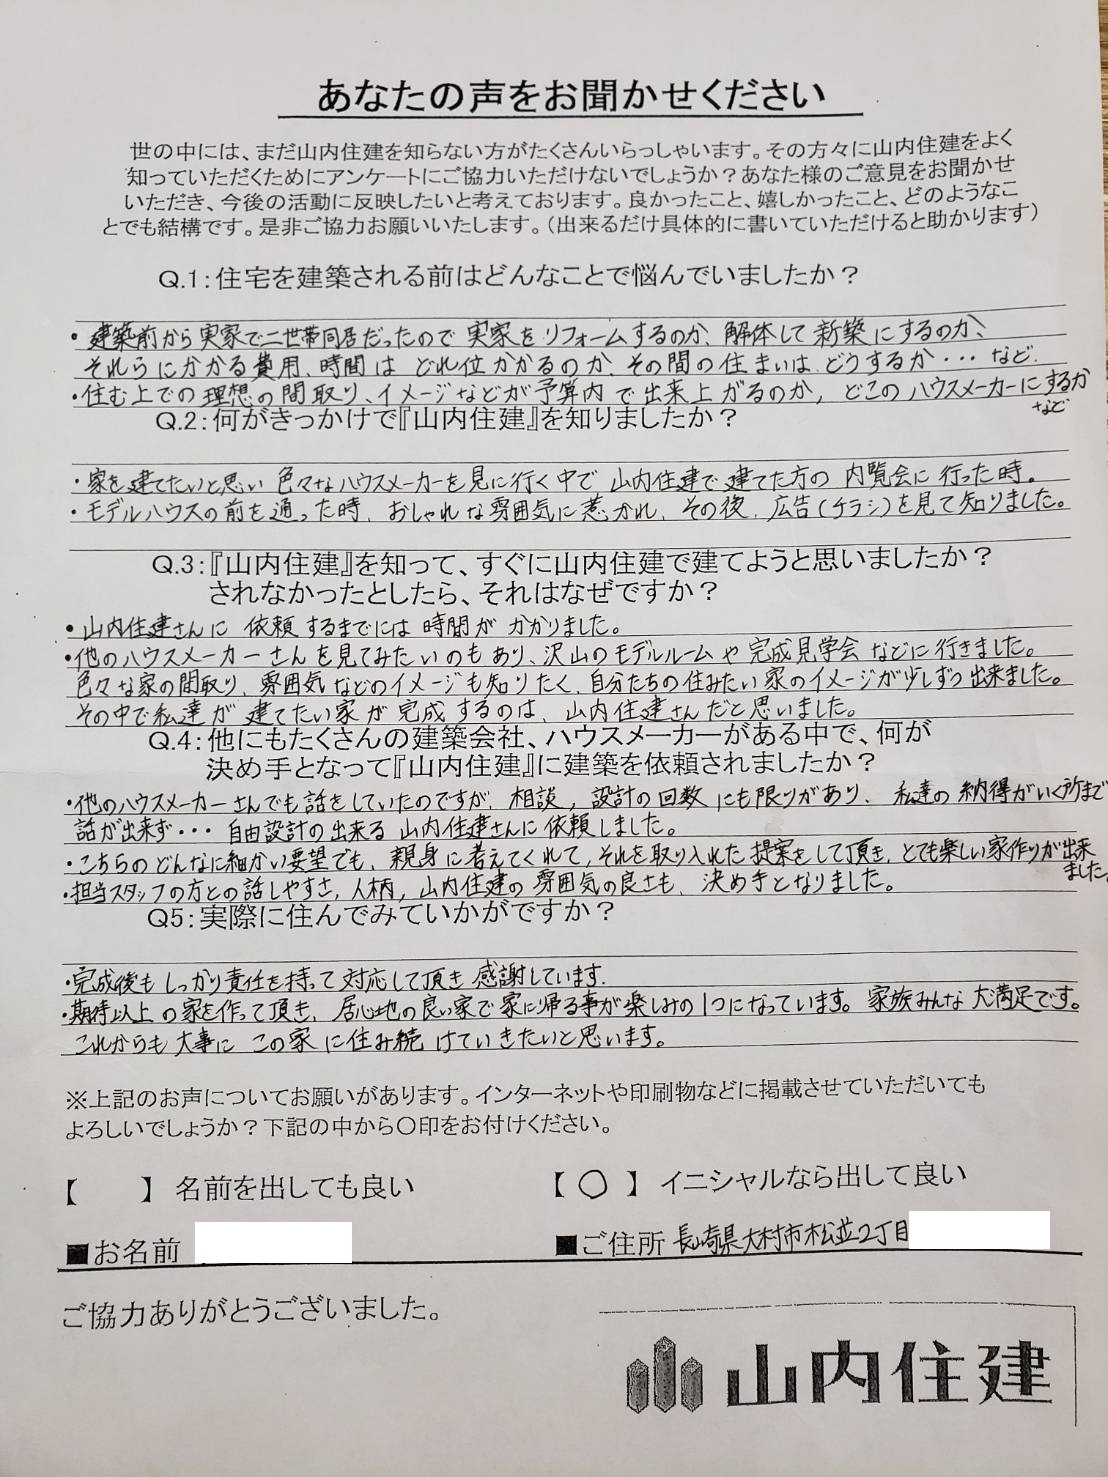 あなたの声をお聞かせください
世の中には、まだ山内住建を知らない方がたくさんいらっしゃいます。その方々に山内住建をよく
知っていただくためにアンケートにご協力いただけないでしょうか？あなた様のご意見をお聞かせ
いただき、今後の活動に反映したいと考えております。良かったこと、嬉しかったこと、どのようなこ
とでも結構です。是非ご協力お願いいたします。（出来るだけ具体的に書いていただけると助かります）
Q.1：住宅を建築される前はどんなことで悩んでいましたか？
・建築前から実家で二世帯同居だったので実家をリフォームするのか、解体して新築にするのか、
それらにかかる費用、時間はどれ位かかるのか、その間の住まいはどうするか・・・など。
・住む上での理想の間取り、イメージなどが予算内で出来上がるのか，どこのハウスメーカーにするか
など
Q.2：何がきっかけで『山内住建』を知りましたか？
・家を建てたいと思い色々なハウスメーカーを見に行く中で山内住建で建てた方の内覧会に行った時。
・モデルハウスの前を通った時、おしゃれな雰囲気に惹かれ、その後、広告（チラシ）を見て知りました。
Q.3：『山内住建』を知って、すぐに山内住建で建てようと思いましたか？
されなかったとしたら、それはなぜですか？
・山内住建さんに依頼するまでには時間がかかりました。
・他のハウスメーカーさんを見てみたいのもあり、沢山のモデルルームや完成見学会などに行きました。
色々な家の間取り、雰囲気などのイメージも知りたく、自分たちの住みたい家のイメージが少しずつ出来ました。
その中で私達が建てたい家が完成するのは、山内住建さんだと思いました。
Q.4：他にもたくさんの建築会社、ハウスメーカーがある中で、何が
決め手となって『山内住建』に建築を依頼されましたか？
・他のハウスメーカーさんでも話をしていたのですが、相談，設計の回数にも限りがあり、私達の納得がいく所まで
話が出来ず・・・自由設計の出来る山内住建さんに依頼しました。
・こちらのどんなに細かい要望でも、親身に考えてくれて，それを取り入れた提案をして頂き、とても楽しい家作りが出来
ました。
・担当スタッフの方との話しやすさ，人柄，山内住建の雰囲気の良さも、決め手となりました。
Q5：実際に住んでみていかがですか？
・完成後もしっかり責任を持って対応して頂き感謝しています。
・期待以上の家を作って頂き、居心地の良い家で家に帰る事が楽しみの1つになっています。家族みんな大満足です。
これからも大事にこの家に住み続けていきたいと思います。
※上記のお声についてお願いがあります。インターネットや印刷物などに掲載させていただいても
よろしいでしょうか？下記の中から〇印をお付けください。
【　　】名前を出しても良い　【〇】イニシャルなら出して良い
■お名前　■ご住所 長崎県大村市松並2丁目
ご協力ありがとうございました。
山内住建